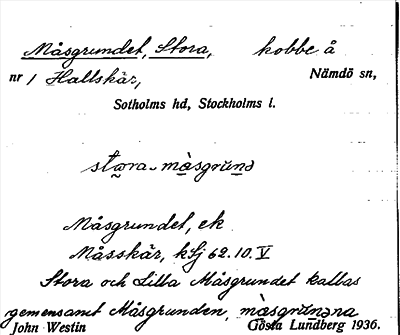 Måsgrundet, Stora, kobbe å
nr 1 Hallskär, Nämdö sn,
Sotholms hd, Stockholms l.
stωra-màsgrùnd
Måsgrundet, ek
Måsskär, kSj 62.10. V
Stora och Lilla Måsgrundet kallas
gemensamt Måsgrunden, màsgrùnəna
John Westin Gösta Lundberg 1936.